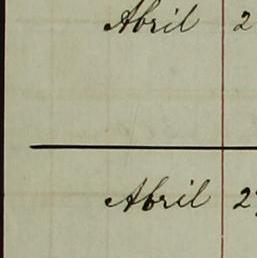 Abril 2
Abril 2